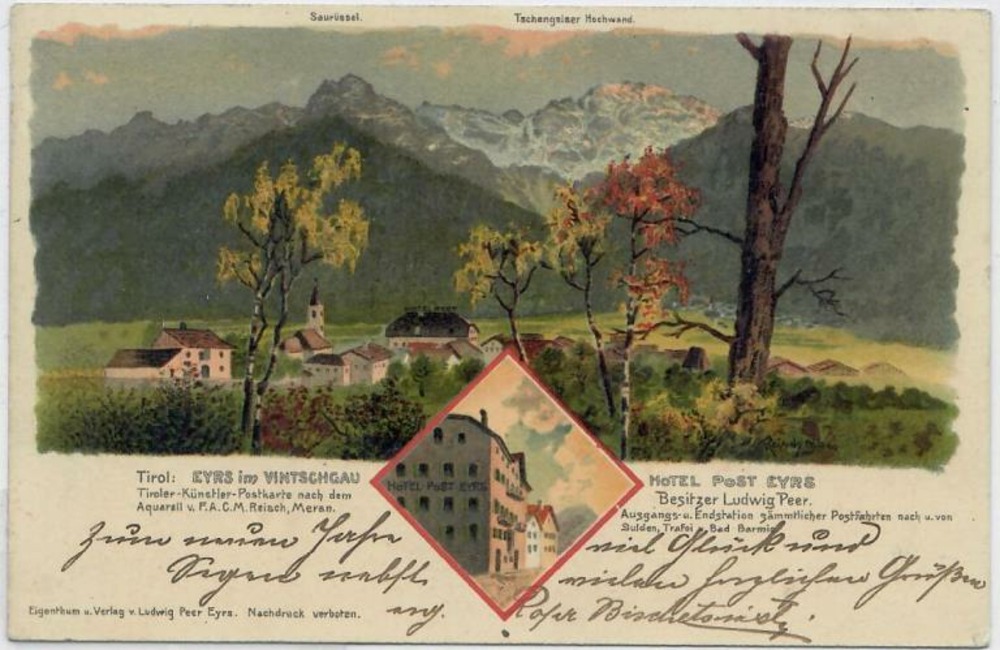 Saurüssel.
Tschengelser Hochwand.
HOTEL POST
Tirol: EYRS im VINTSCHGAU
Tiroler-Künstler-Postkarte nach dem
Aquarell v. F.A.C.M. Reisch, Meran.
HOTEL POST EYRS
HOTEL POST EYRS
Besitzer Ludwig Peer.
Ausgangs- u. Endstation sämmtlicher Postfahrten nach u. von
Sulden, Trafoi u. Bad Bormio
Zum neuen Jahre viel Glück und
Segen nebst vielen herzlichen Grüßen
Eigenthum u. Verlag v. Ludwig Peer Eyrs. Nachdruck verboten.
erg.